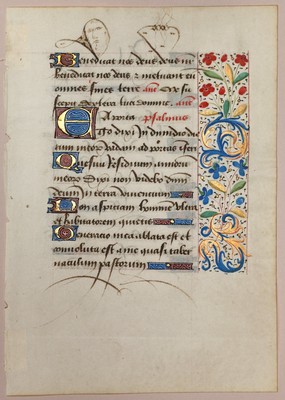 Benedicat nos deus deus nr
benedicat nos deus et metuant eu
omnes fines terre añe Me su
scepit dextera tua domine. añe
Psalmus
Ego dixi in dimidio die
rum meorum vadam ad portas inferi
Quesivi residuum annorum
meorum Dixi non videbo dnm
deum in terra viventium
Non aspiciam hominem ultra
et habitatorem quietis
Generatio mea ablata est et
convoluta est a me quasi taber
naculum pastorum